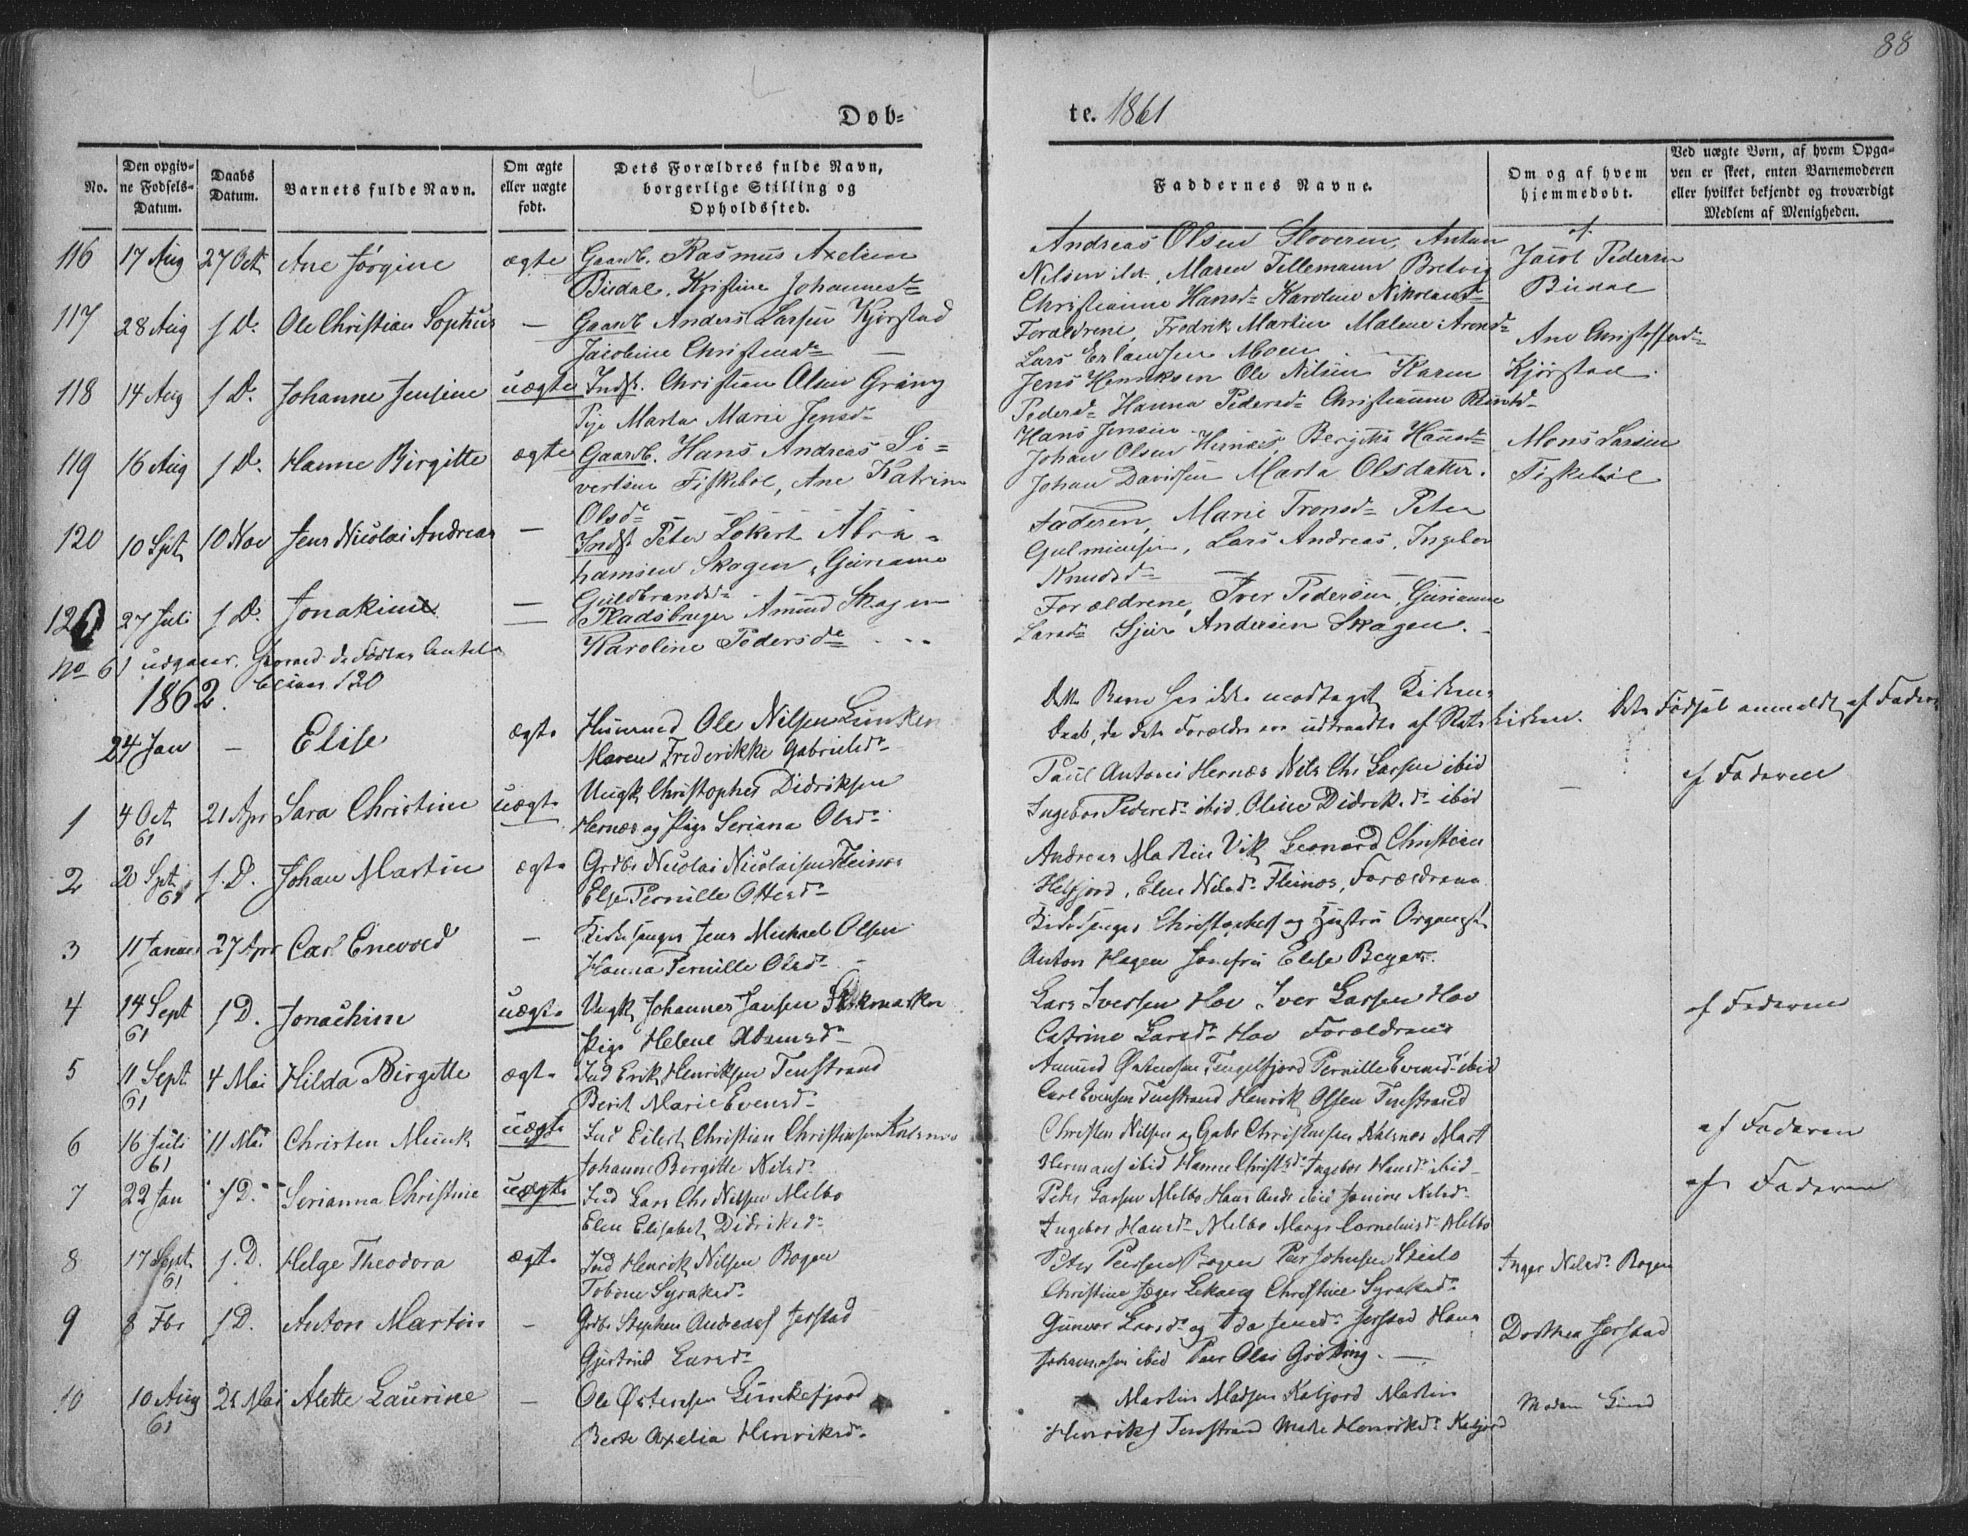 88
Døb=
te. 1861
No.
Den opgiv-
ne Fødsels-
Datum.
Daabs
Datum.
Barnets fulde Navn.
Om ægte
eller uægte
født.
Dets Forældres fulde Navn,
borgerlige Stilling og
Opholdssted.
Faddernes Navne.
Om og af hvem
hjemmedøbt.
Ved uægte Børn, af hvem Opga-
ven er skeet, enten Barnemoderen
eller hvilket bekjendt og troværdigt
Medlem af Menigheden.
116 17 Aug 27 Oct Ane Jørgine ægte Gaardb. Rasmus Axelsen
Budal, Kristine Johannesd
Andreas Olsen Anton
Nilsen Maren Tillemann Bretvig
Christianne Hansd Karoline Nikolaisd
Jacob Pedersen
Budal
117 28 Aug f D. Ole Christian Sophus — Gaardb Anders Larsen Kjørstad
Jacobine Christensd —
Forældrene, Fredrik Martin Malene Aronsd
Lars Erlandsen Moen
Ane Christoffersd
Kjørstad
118 14 Aug f D. Johanne Jensine uægte Inds. Christian Olsen Grøng
Pige Marta Marie Jensd
Jens Henriksen Ole Nilsen Karen
Pedersd Hanna Pedersd Christianne
Hans Jensen
119 16 Aug f D. Hanne Birgitte ægte Gaardb. Hans Andreas Si=
vertsen Fiskebøl, Ane Katrine
Olsd
Johan Olsen Hernæs, Bergitte Hansd
Johan Davidsen Marta Olsdatter.
Mons Larsen
Fiskebøl
120 10 Spt 10 Nov Jens Nicolai Andreas — Inds. Peter Lökert Abra=
hamsen Skogen, Gurianne
Guldbrandsd
Faderen, Marie Tronsd Peter
Lars Andreas, Ingebor
Knudsd
120 27 Juli f D. Jonakime — Pladsbruger Amund Skogen
Karoline Pedersd
Forældrene, Iver Pedersen, Gurianne
Larsd Sjur Andersen Skogen.
No 61 udgaar, hvorved de Fødtes Antal
bliver 120
1862.
24 Jan — Elise ægte Husmand Ole Nilsen
Maren Frederikke Gabrielsd
Dette Barn har ikke modtaget Kirkens
Daab, da dets Forældre ere udtraadte af Statskirken. Dets Fødsel anmeldt af Faderen
1 4 Oct 61 21 Apr Sara Christine uægte Ungk. Christopher Didriksen
Hernæs og Pige Seriana Olsd
Paul Antoni Hernæs Nils Chr Larsen ibid
Ingebor Pedersd ibid, Oline Didriksd ibid
— af Faderen
2 20 Spt 61 f. D. Johan Martin ægte Grdbr Nicolai Nicolaisen Fleinæs
Else Pernille Ottesd
Andreas Martin Vik Leonard Christian
Helfjord, Elen Nilsd Fleinæs, Forældrene
3 11 Januar 27 Apr Carl Enevold — Kirkesanger Jens Michael Olsen
Hanna Pernille Olsd
Kirkesanger Christophers og Hustru Organist
Anton Hagen Jomfru Elise Beyer.
4 14 Sept 61 f D. Jonachim uægte Ungk Johannes Jansen Stokmarken
Pige Helene Adamsd
Lars Iversen Hov Iver Larsen Hov
Catrine Larsd Hov Forældrene
af Faderen
5 11 Sept 61 4 Mai Hilda Birgitte ægte Ind Erik Henriksen Tenstrand
Berit Marie Evensd
Amund Østensen Tengelfjord Pernille Evensd ibid
Carl Evensen Tenstrand Henrik Olsen Tenstrand
6 16 Juli 61 11 Mai Christen Munk uægte Ind Eilert Christian Christensen
Johanne Birgitte Nilsd
Christen Nilsen og Gabr Christensen Mart
Hermans ibid Hanne Christd Ingebor Hansd ibid
af Faderen
7 22 Jan f D. Serianna Christine uægte Ind Lars Chr Nilsen Melbo
Elen Elisabet Didriksd
Peder Larsen Melbo Hans Andr ibid Nilsd
Ingebor Hansd Melbo Marg Cornelisd Melbo
af Faderen
8 17 Sept 61 f. D. Helge Theodora ægte Ind Henrik Nilsen Bogen
Tobine Syraksd
Peter Bogen Per Johnsen
Christine Jæger Christine Syraksd
Inger Nilsd Bogen
9 8 Fbr f D. Anton Martin — Grdbr Stephen Andreas Jerstad
Gjertrud Larsd
Gunvor Larsd og Ida Jensd Jerstad Hans
Johannesen ibid Peer Olai Grøtting. —
Dorthea Jerstad
10 10 Aug 61 21 Mai Alette Laurine — Ole Østensen Lunkefjord
Berte Axelia Henriksd
Martin Madsen Kaljord Martin
Henriks Tenstrand Henriksd Kaljord
Madam Lund